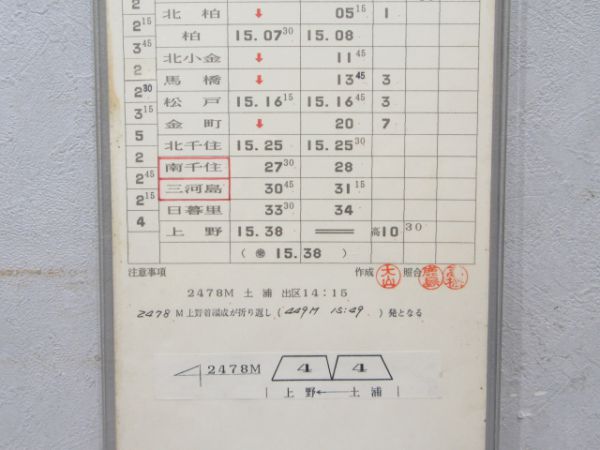 2
北柏 ↓ 05 15 1
2 15
柏 15.07 30 15.08
3 45
北小金 ↓ 11 45
2
馬橋 ↓ 13 45 3
2 30
松戸 15.16 15 15.16 45 3
3 15
金町 ↓ 20 7
5
北千住 15.25 15.25 30
2
南千住 27 30 28
2 45
三河島 30 45 31 15
2 15
日暮里 33 30 34
4
上野 15.38 ═ 高10 30
( 15.38 )
注意事項 作成 大山 照合
2478M 土浦 出区14:15
2478 M上野着編成が折り返し (449M 15:49 ) 発となる
2478M 4 4
上野←土浦